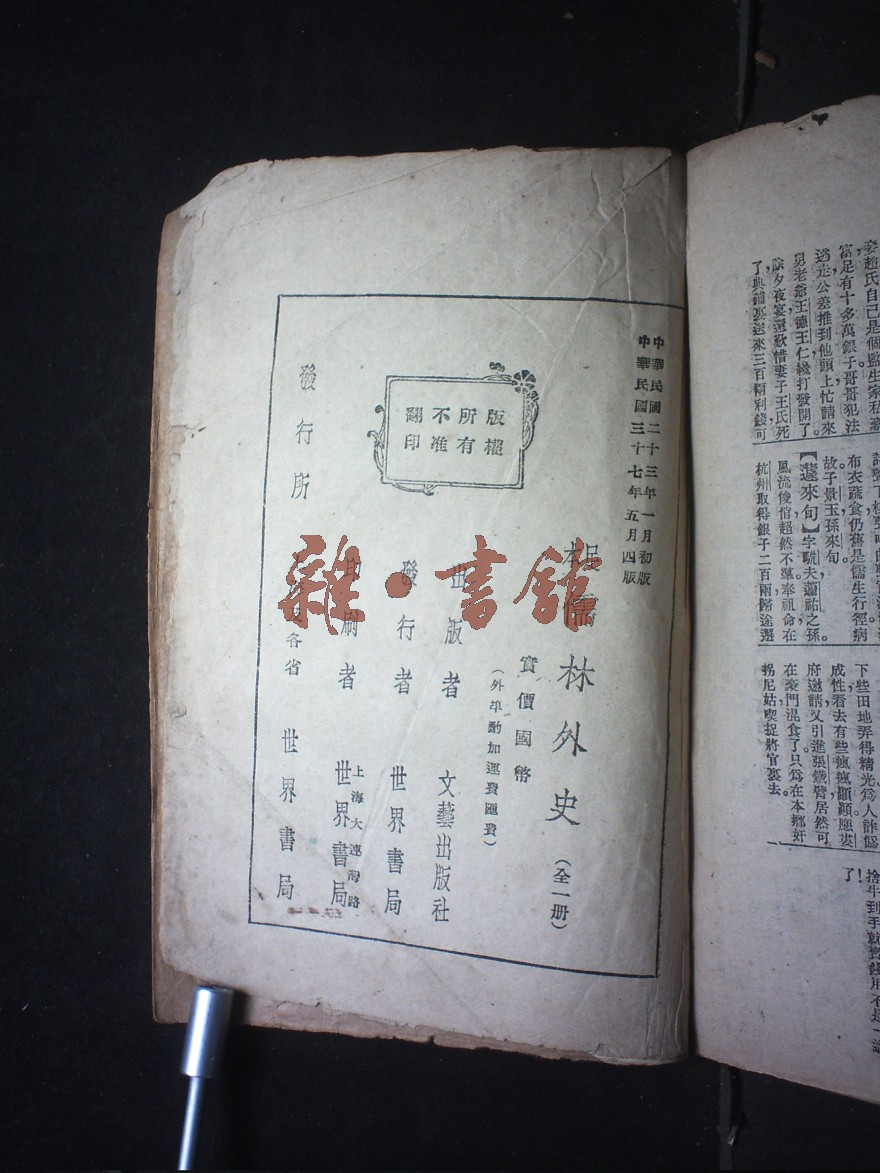 中華民國二十三年一月初版
中華民國三十七年五月四版
本
儒林外史（全一册）
實價國幣
（外埠酌加運費匯費）
版權
所有
不准
翻印
出版者 文藝出版社
發行者 世界書局
印刷者 世界書局
上海大連灣路
發行所 各省 世界書局
雜·書館
妾趙氏自己是個監生家私豪
富足有十多萬銀子哥哥犯法
逃走公差推到他頭上忙請來
舅老爺王德王仁纔打發開了。
除夕夜宴還歎惜妻子王氏死
了典鋪裏送來三百兩利錢可
布衣蔬食仍舊是儒生行徑病
故子景玉孫來旬。
【蘧來旬】字駪夫蘧祐之孫
風流俊俏超然不羣奉祖命在
杭州取得銀子二百兩歸途邂
下些田地弄得精光爲人詐僞
成性看去有些瘋瘋顚顚應婁
府邀請又引進張鐵臂居然可
在豪門混食了只爲在本鄉奸
拐尼姑喫捉將官裏去。
了！